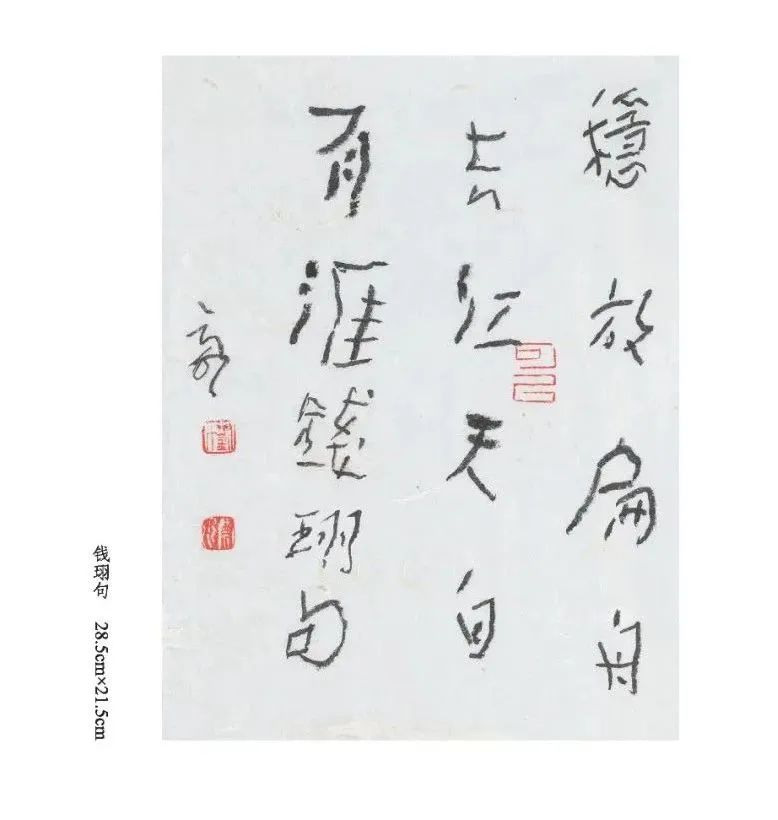 穩放扁舟
去江天自
有涯錢珝句
钱珝句 28.5cm×21.5cm